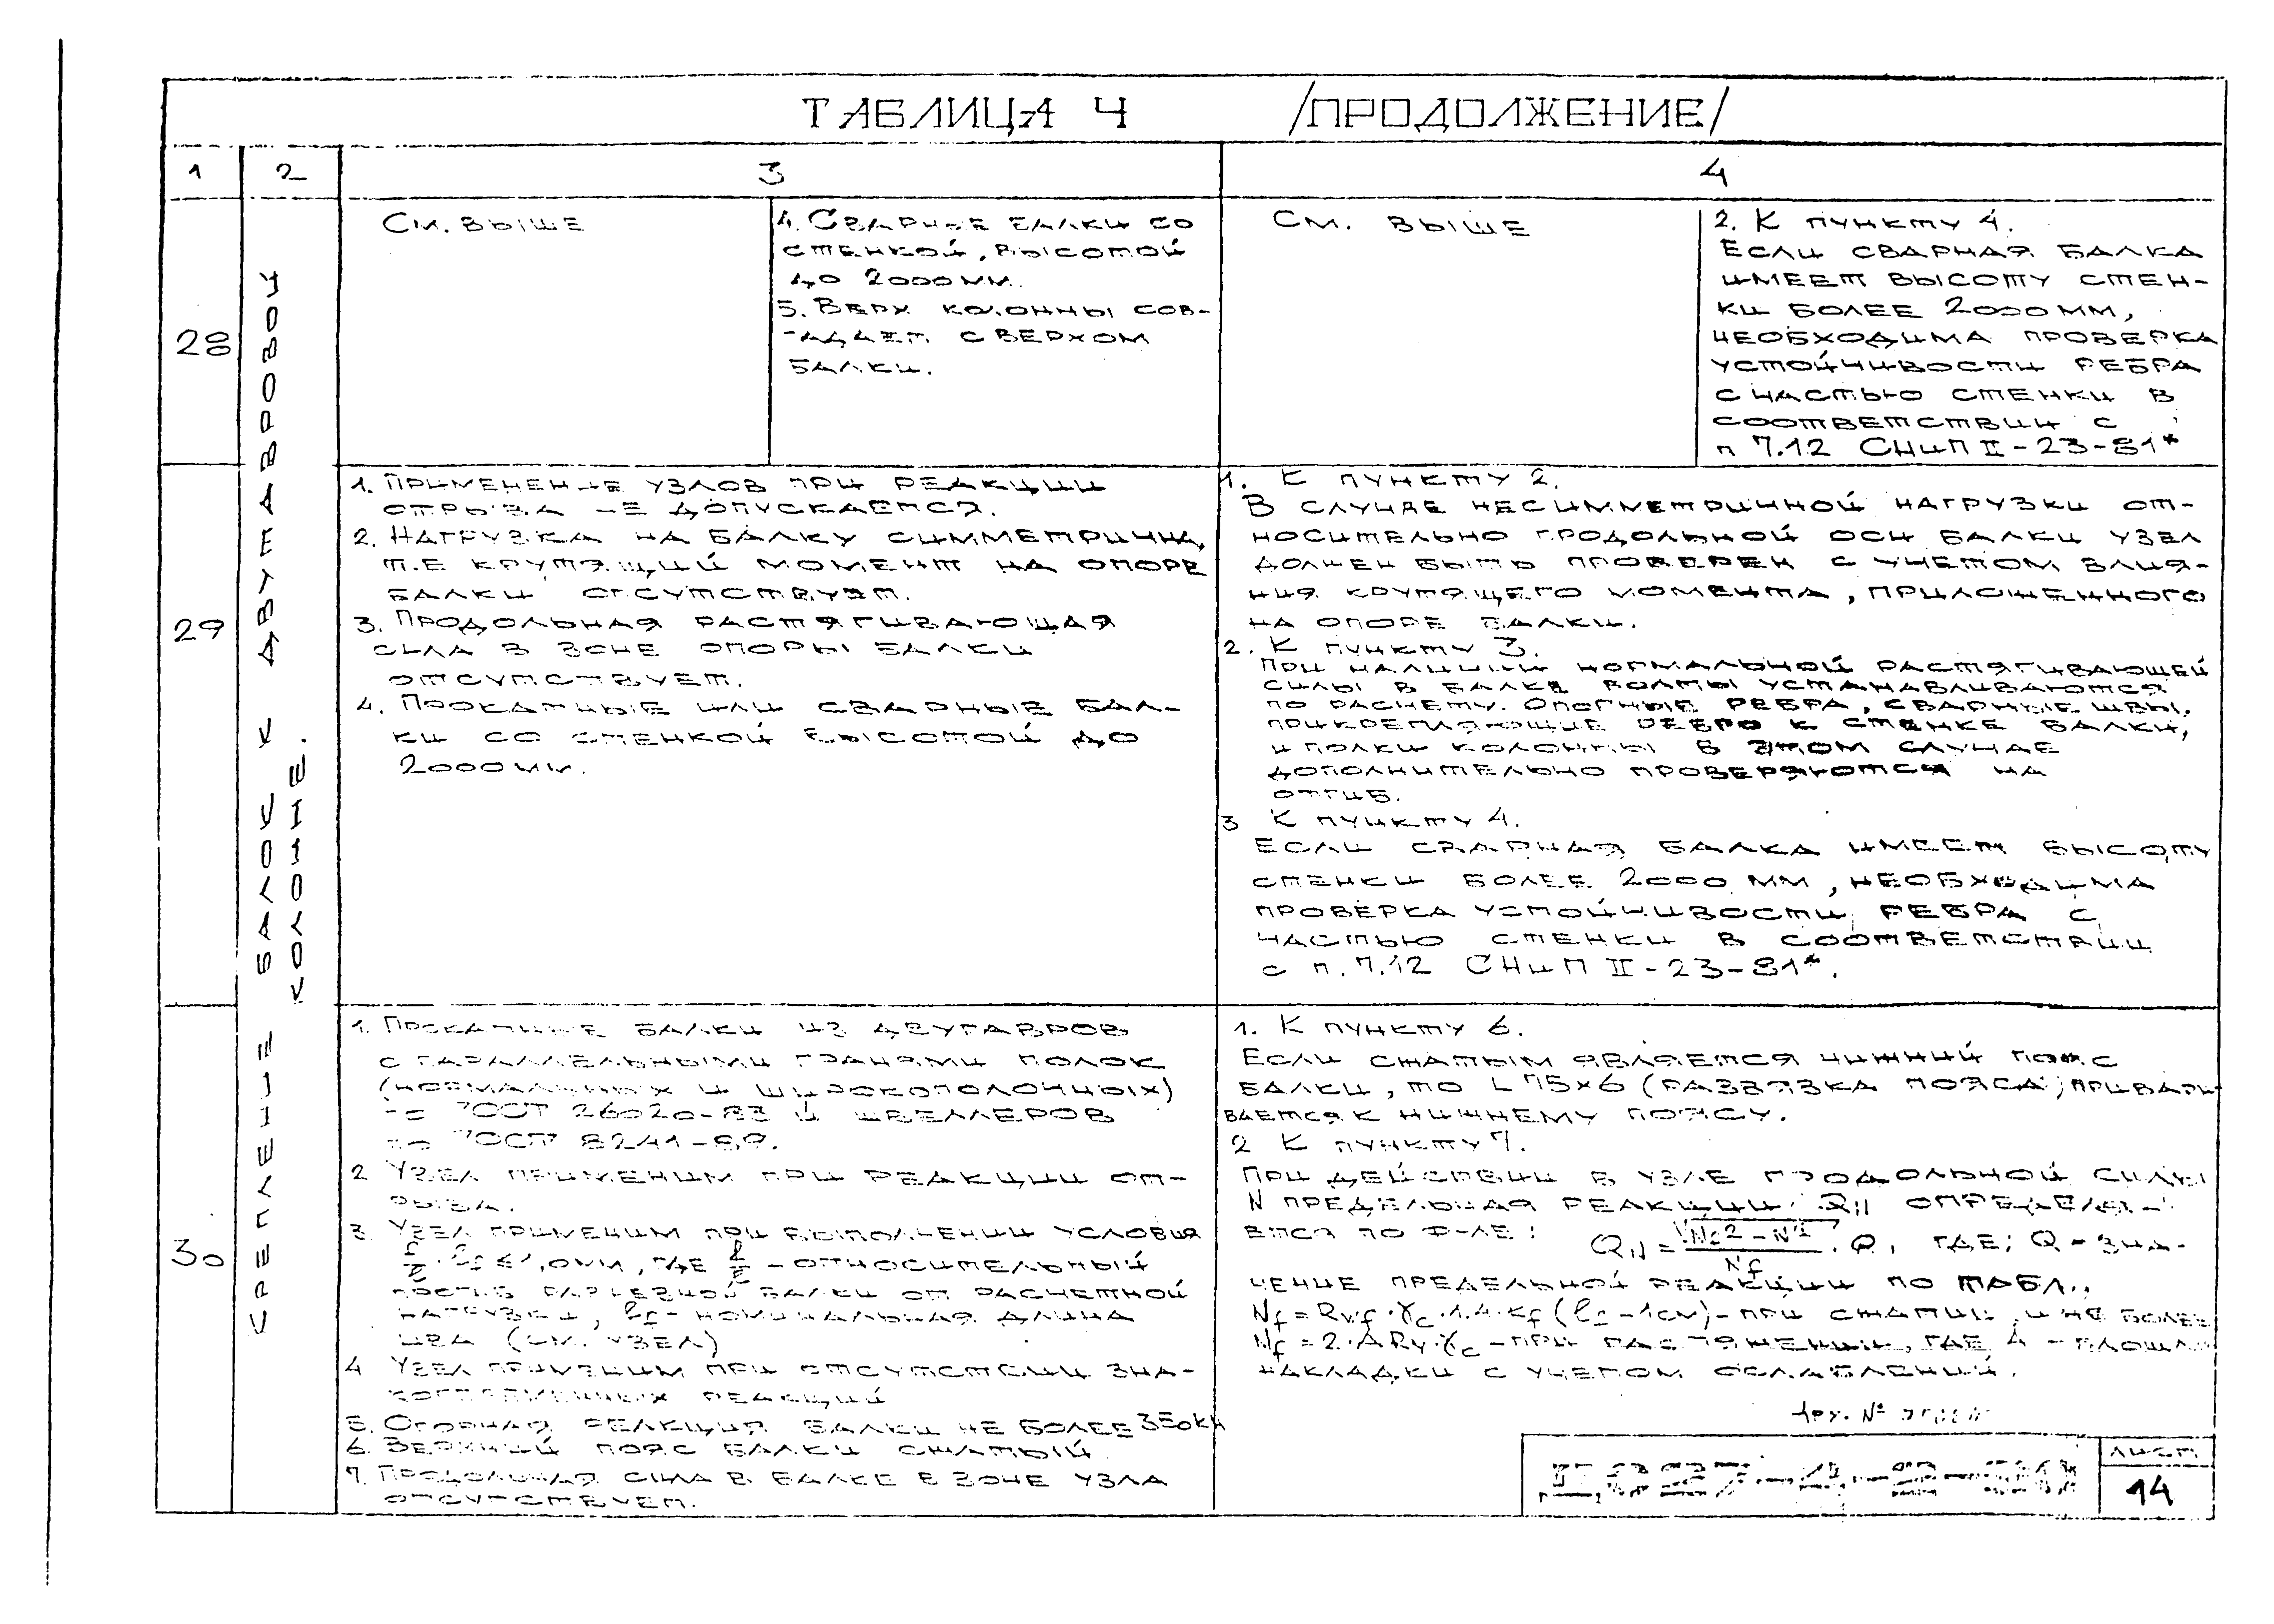 ТАБЛИЦА 4 /ПРОДОЛЖЕНИЕ/
1 2 3 4
28
КРЕПЛЕНИЕ БАЛОК К ДВУТАВРОВОЙ
КОЛОННЕ.
См. выше
4. Сварные балки со
стенкой, высотой
до 2000 мм.
5. Верх колонны сов-
падает с верхом
балки.
См. выше
2. К пункту 4.
Если сварная балка
имеет высоту стен-
ки более 2000 мм,
необходима проверка
устойчивости ребра
с частью стенки в
соответствии с
п 7.12 СНиП II-23-81*
29
1. Применение узлов при реакции
отрыва не допускается.
2. Нагрузка на балку симметрична,
т.е крутящий момент на опоре
балки отсутствует.
3. Продольная растягивающая
сила в зоне опоры балки
отсутствует.
4. Прокатные или сварные бал-
ки со стенкой высотой до
2000 мм.
1. К пункту 2.
В случае несимметричной нагрузки от-
носительно продольной оси балки узел
должен быть проверен с учетом влия-
ния крутящего момента, приложенного
на опоре балки.
2. К пункту 3.
При наличии нормальной растягивающей
силы в балке болты устанавливаются
по расчету. Опорные ребра, сварные швы,
прикрепляющие ребро к стенке балки,
и полки колонны в этом случае
дополнительно проверяются на
отгиб.
3 К пункту 4.
Если сварная балка имеет высоту
стенки более 2000 мм, необходима
проверка устойчивости ребра с
частью стенки в соответствии
с п. 7.12 СНиП II-23-81*.
30
1. Прокатные балки из двутавров
с параллельными гранями полок
(нормальных и широкополочных)
по ГОСТ 26020-83 и швеллеров
по ГОСТ 8241-89.
2 Узел применим при реакции от-
рыва.
3. Узел применим при выполнении условия
где f/l - относительный
прогиб разрезной балки от расчетной
нагрузки, lf - номинальная длина
шва (см. узел)
4 Узел применим при отсутствии зна-
копеременных реакций
5. Опорная реакция балки не более 350кН
6. Верхний пояс балки сжатый.
7. Продольная сила в балке в зоне узла
отсутствует.
1. К пункту 6.
Если сжатым является нижний пояс
балки, то L 75×6 (развязка пояса) привари
вается к нижнему поясу.
2 К пункту 7.
При действии в узле продольной силы
N предельная реакции QN определя-
ется по ф-ле: QN = √(Nf² - N²) / Nf · Q, где: Q - зна-
чение предельной реакции по табл.,
Nf = Rwf · γc · 1.4 · kf (lf - 1см) - при сжатии, и не более
Nf = 2 · ARy · γc - при растяжении, где A - площадь
накладки с учетом ослаблений.
Арх. №
лист
14